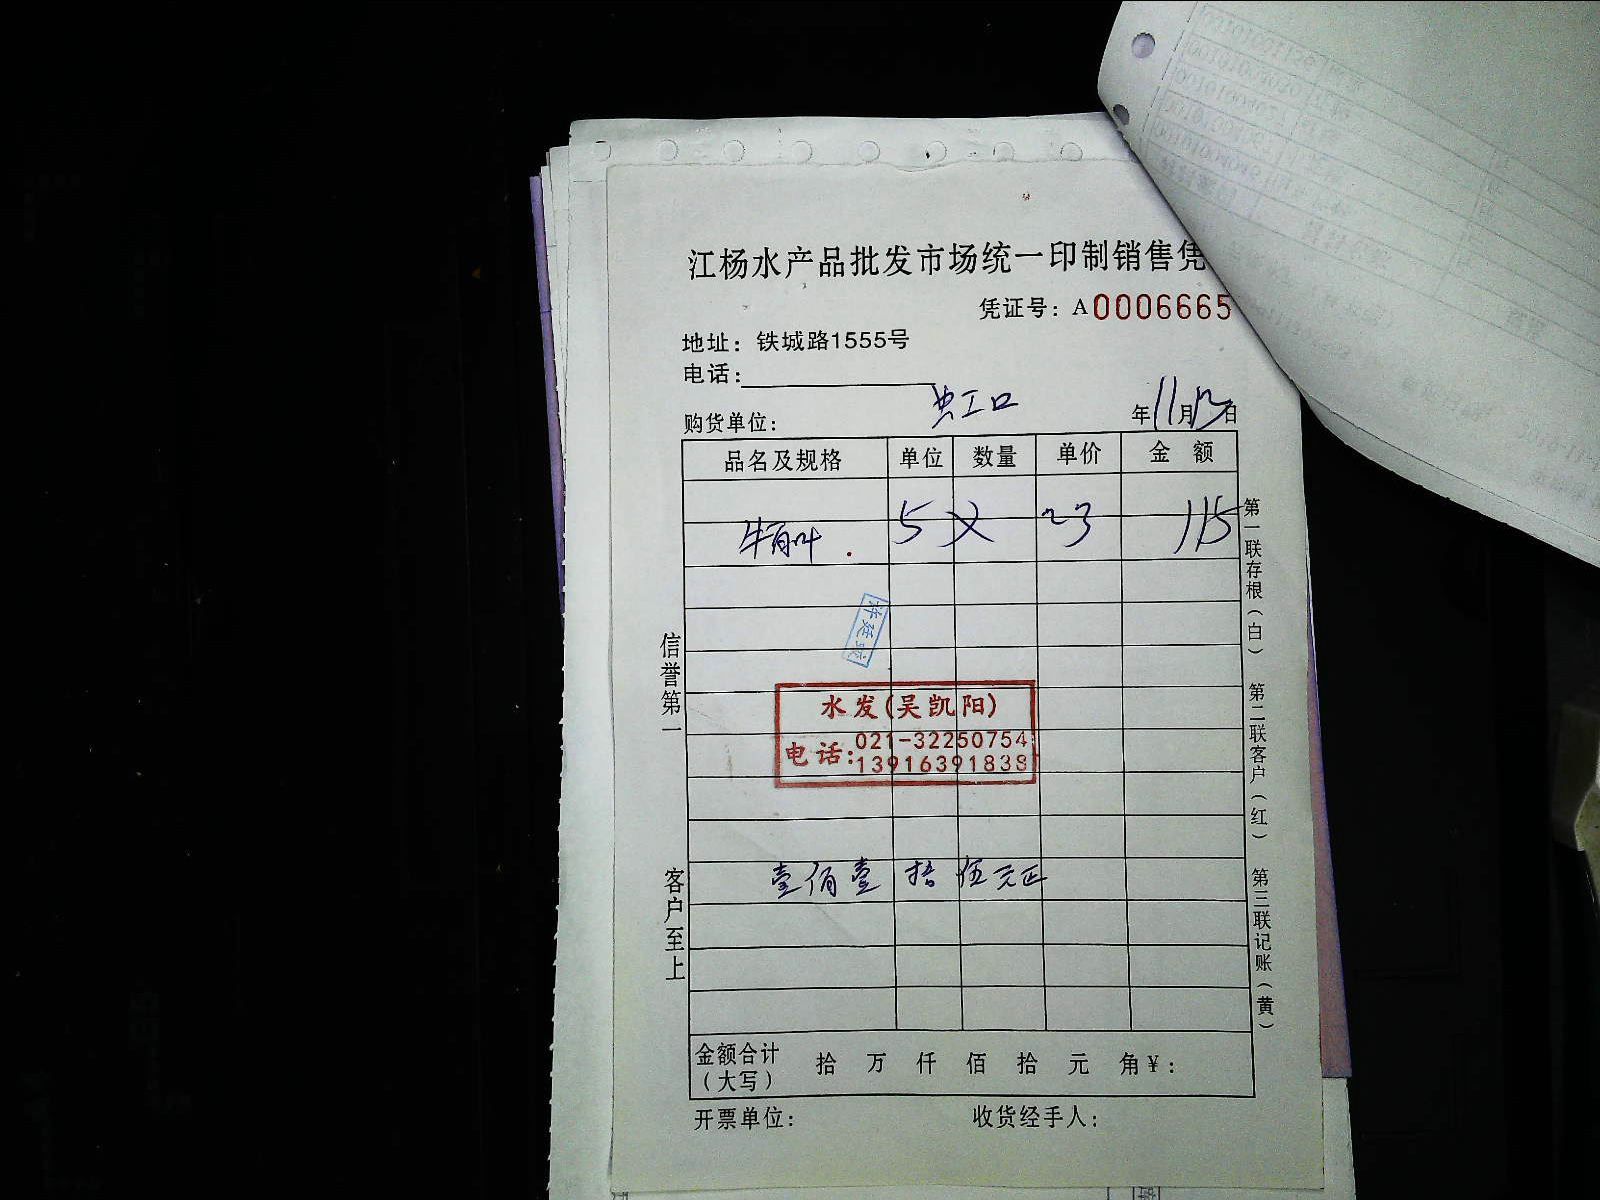 江杨水产品批发市场统一印制销售凭
凭证号：A0006665
地址：铁城路1555号
电话：
购货单位： 虹口 年11月12日
品名及规格 单位 数量 单价 金额
牛百叶 5 23 115
水发(吴凯阳)
电话：021-32250754
13916391838
壹佰壹拾伍元正
金额合计 拾 万 仟 佰 拾 元 角 ¥：
（大写）
开票单位： 收货经手人：
信誉第一
客户至上
第一联存根（白）
第二联客户（红）
第三联记账（黄）